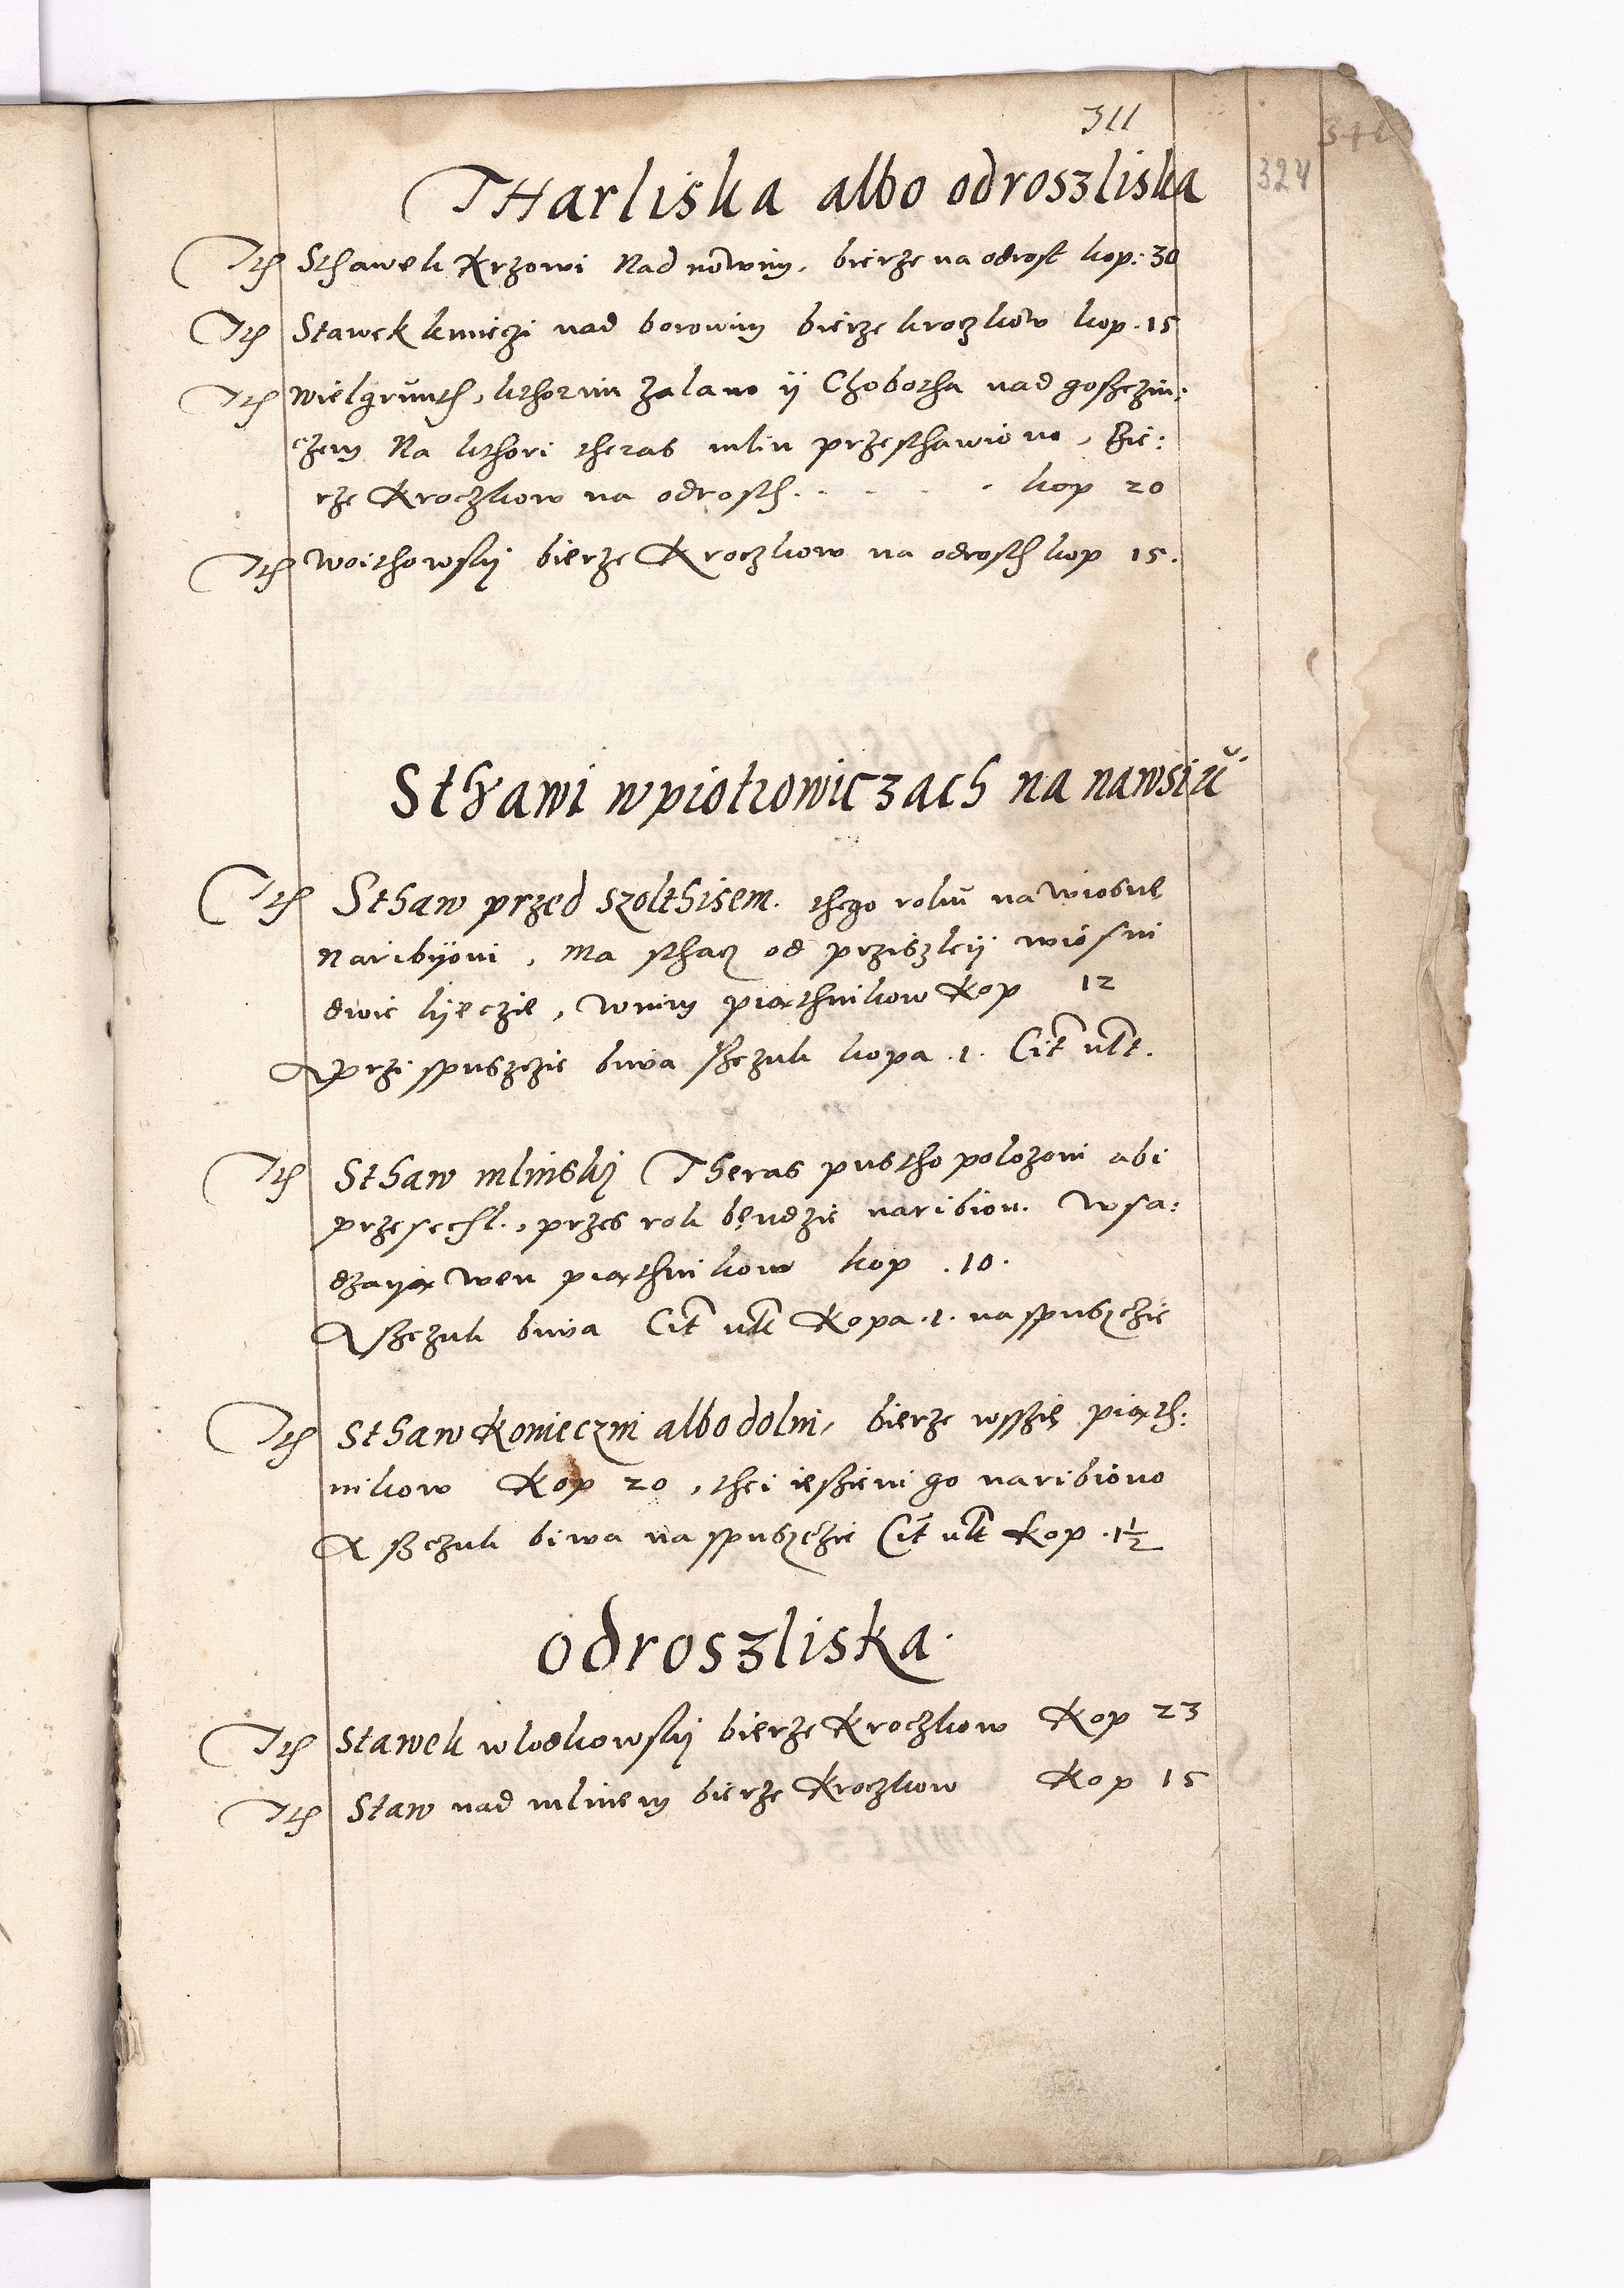 311
324
THarliska albo odroszliska
Ith Sthawek Krzowi Nad nowim, bierze na odrost kop: 30
Ith Stawek kmieczi nad borowim bierze kroczkow kop. 15
Ith Wielgrunth, kthorim zalano ij Chobotha nad goszczin:
czem Na kthori theras mlin przesthawiono, Bie:
rze Kroczkow na odrosth. . . . . . kop 20
Ith Woithowskij bierze Kroczkow na odrosth kop 15.
Sthawi w piotrowiczach na nawsiu
Ith Sthaw przed szolthisem. thego roku na wiosne
naribijoni, Ma sthacz od prziszleij wiosni
dwie lijeczie, W nim piathnikow Kop 12
A przi spusczie biwa sczuk kopa .1. Cit ult.
Ith Sthaw mlinskij Theras pustho polozoni abi
przesechl., przes rok bendzie naribion. Wsa:
dzaija wen piathnikow kop .10.
A sczuk biwa Cit ult Kopa .1. na spusczie
Ith Sthaw Konieczni albo dolni, bierze wssie piath:
nikow Kop 20, thei iesieni go naribiono
A sczuk biwa na spusczie Cit ult Kop .1½
odroszliska.
Ith Stawek wlodkowskij bierze Kroczkow Kop 23
Ith Staw nad mlinem bierze Kroczkow Kop 15